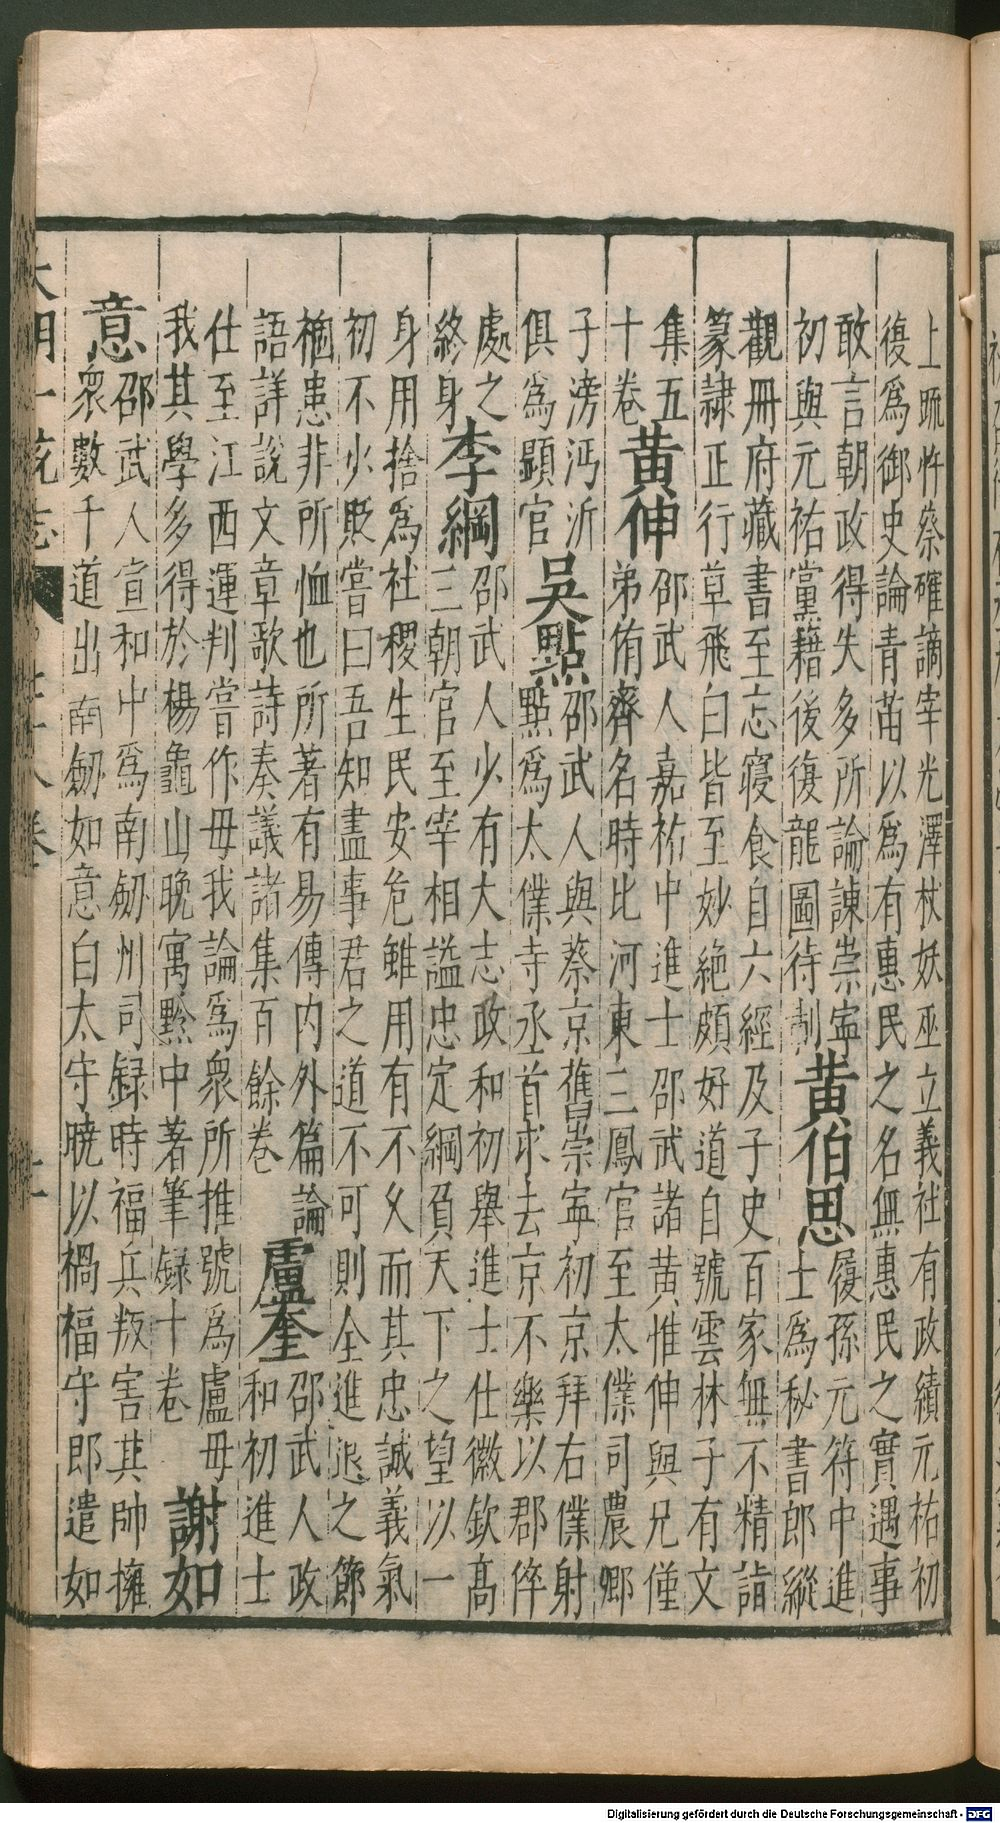 上疏忤蔡確謫宰光澤杖妖巫立義社有政績元祐初
復爲御史論青苗以爲有惠民之名無惠民之實遇事
敢言朝政得失多所論諫崇寧
初與元祐黨籍後復龍圖待制
黃伯思
履孫元符中進
士爲秘書郎縱
觀冊府藏書至忘寢食自六經及子史百家無不精詣
篆隸正行草飛白皆至妙絕頗好道自號雲林子有文
集五
十卷
黃伸
邵武人嘉祐中進士邵武諸黃惟伸與兄僅
弟侑齊名時比河東三鳳官至太僕司農卿
子滂沔沂
俱爲顯官
吳點
邵武人與蔡京舊崇寧初京拜右僕射
點爲太僕寺丞首求去京不樂以郡倅
處之
終身
李綱
邵武人少有大志政和初舉進士仕徽欽高
三朝官至宰相謚忠定綱負天下之望以一
身用捨爲社稷生民安危雖用有不久而其忠誠義氣
初不少貶嘗曰吾知盡事君之道不可則全進退之節
禍患非所恤也所著有易傳内外篇論
語詳說文章歌詩奏議諸集百餘卷
盧奎
邵武人政
和初進士
仕至江西運判嘗作毋我論爲衆所推號爲盧毋
我其學多得於楊龜山晚寓黔中著筆録十卷
謝如
意
邵武人宣和中爲南劒州司録時福兵叛害其帥擁
衆數千道出南劒如意白太守曉以禍福守即遣如
大明一統志
七十八卷
Digitalisierung gefördert durch die Deutsche Forschungsgemeinschaft - DFG